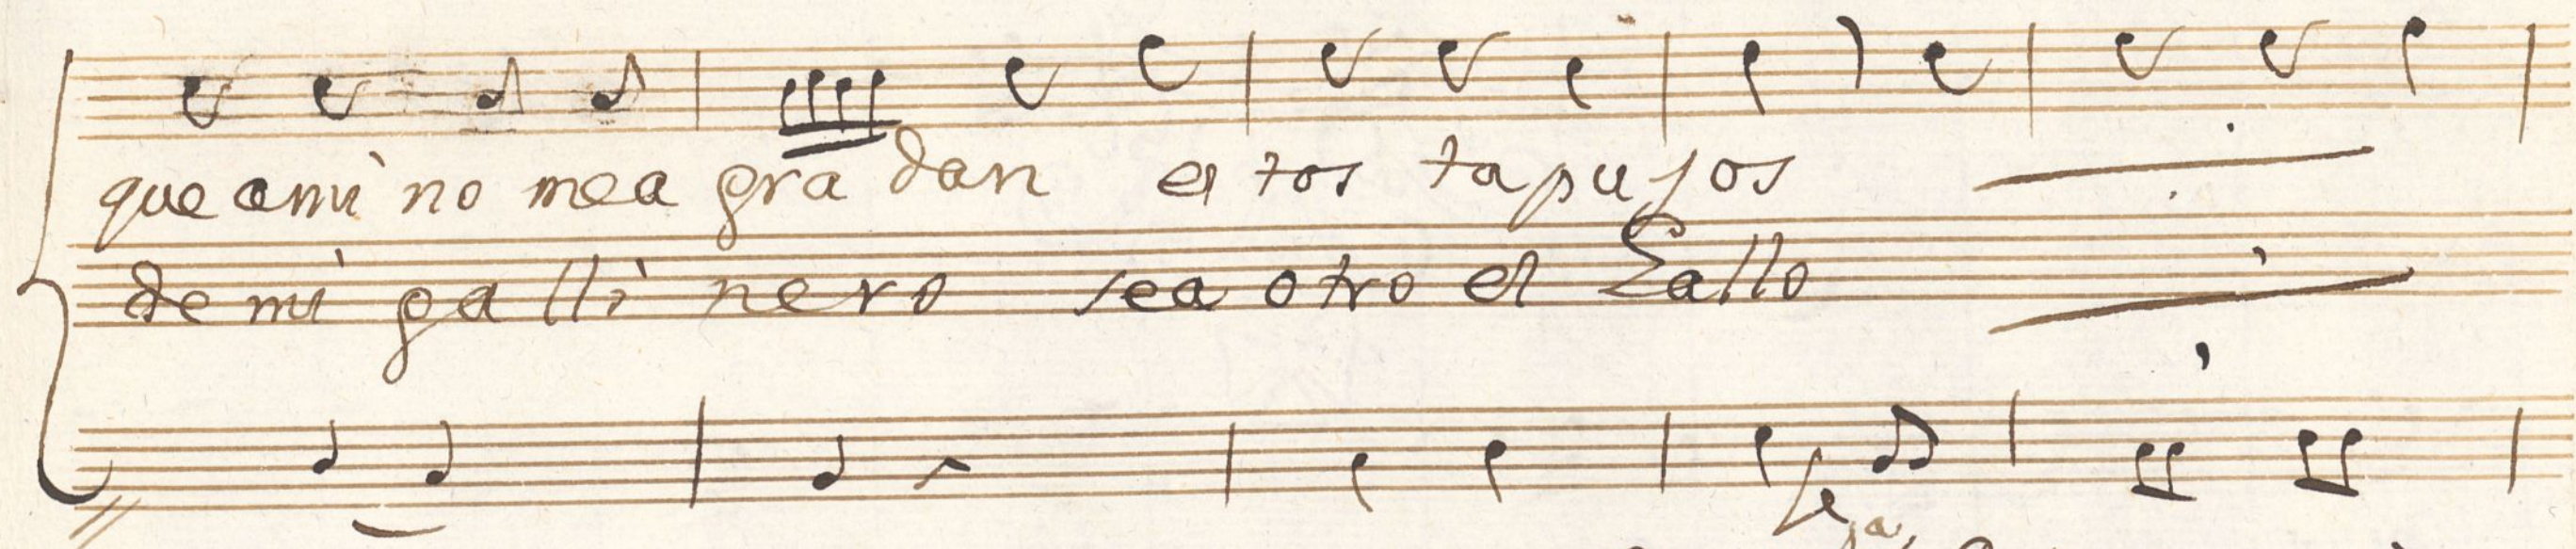 que ami no mea gra dan es tos ta pu jos
de mi ga lli nero sea otro el Gallo